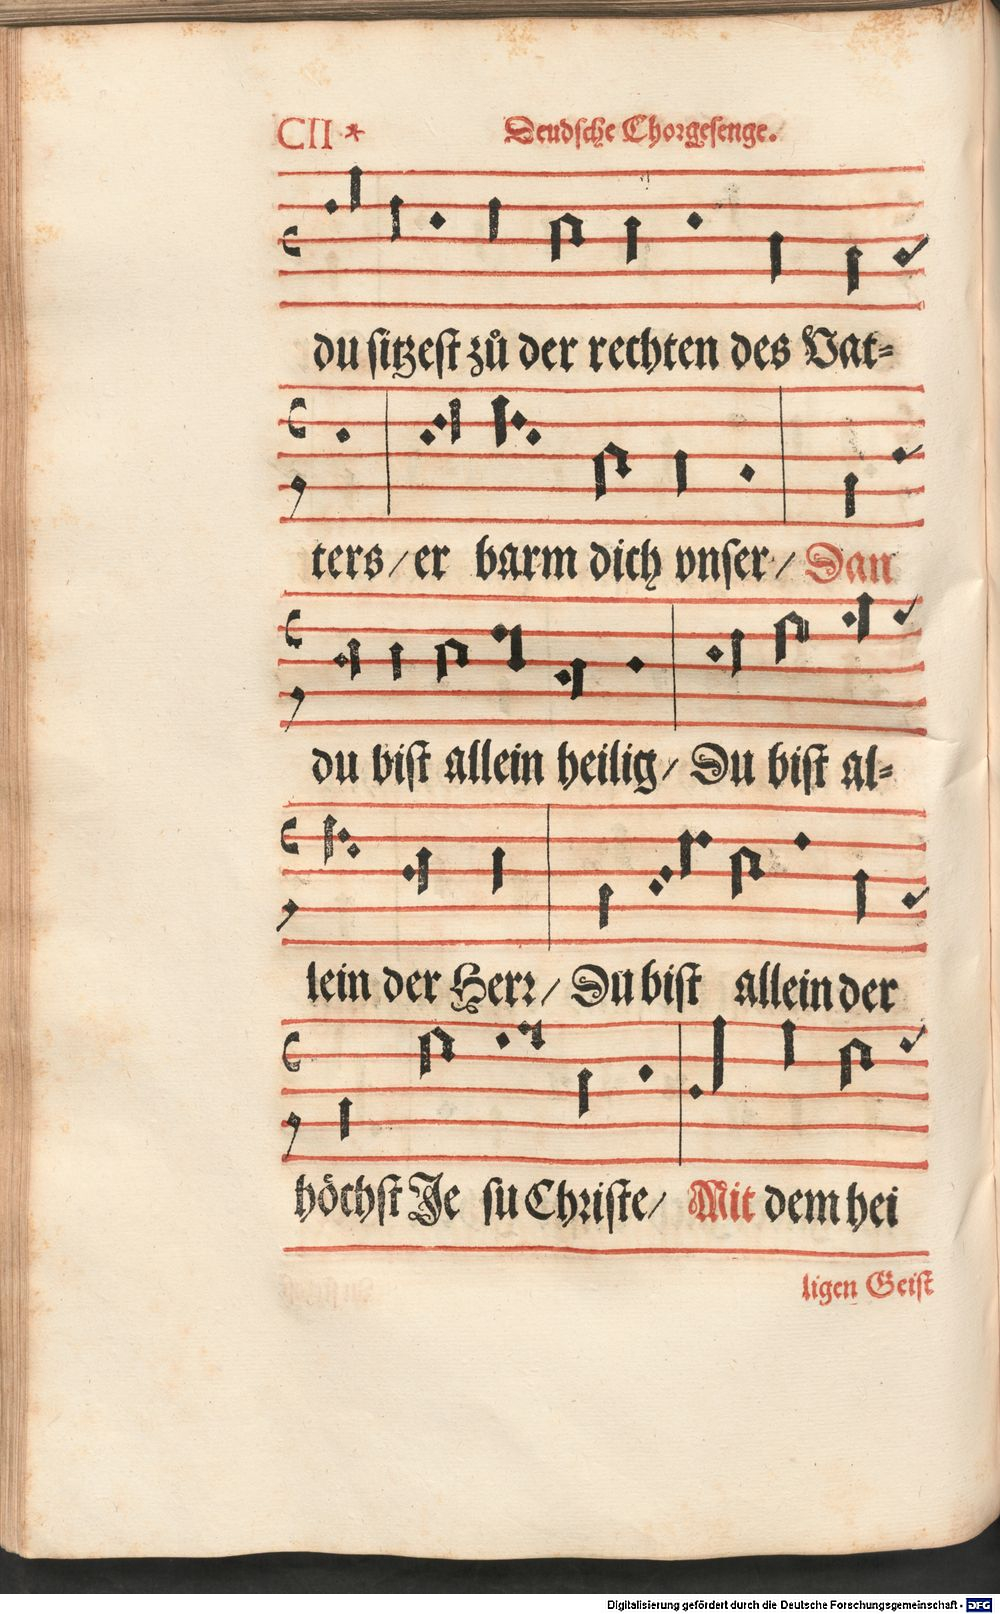 CII *
Deudsche Chorgesenge.
du sitzest zů der rechten des Vat-
ters / er barm dich vnser / Dan
du bist allein heilig / Du bist al-
lein der Herr / Du bist allein der
höchst Je su Christe / Mit dem hei
ligen Geist
Digitalisierung gefördert durch die Deutsche Forschungsgemeinschaft - DFG